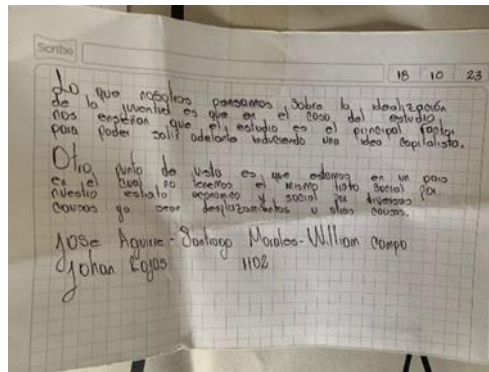 Scribe
18 10 23
Lo que nosotros pensamos sobre la idealización
de la juventud es que en el caso del estudio
nos enseñan que el estudio es el principal factor
para poder salir adelante induciendo una idea capitalista.
Otro punto de vista es que estamos en un pais
en el cual no tenemos el mismo trato social por
nuestro estrato economico y social por diversas
causas ya sean desplazamientos u otras causas.
Jose Aguirre - Santiago Morales - William Campo
Johan Rojas 1102